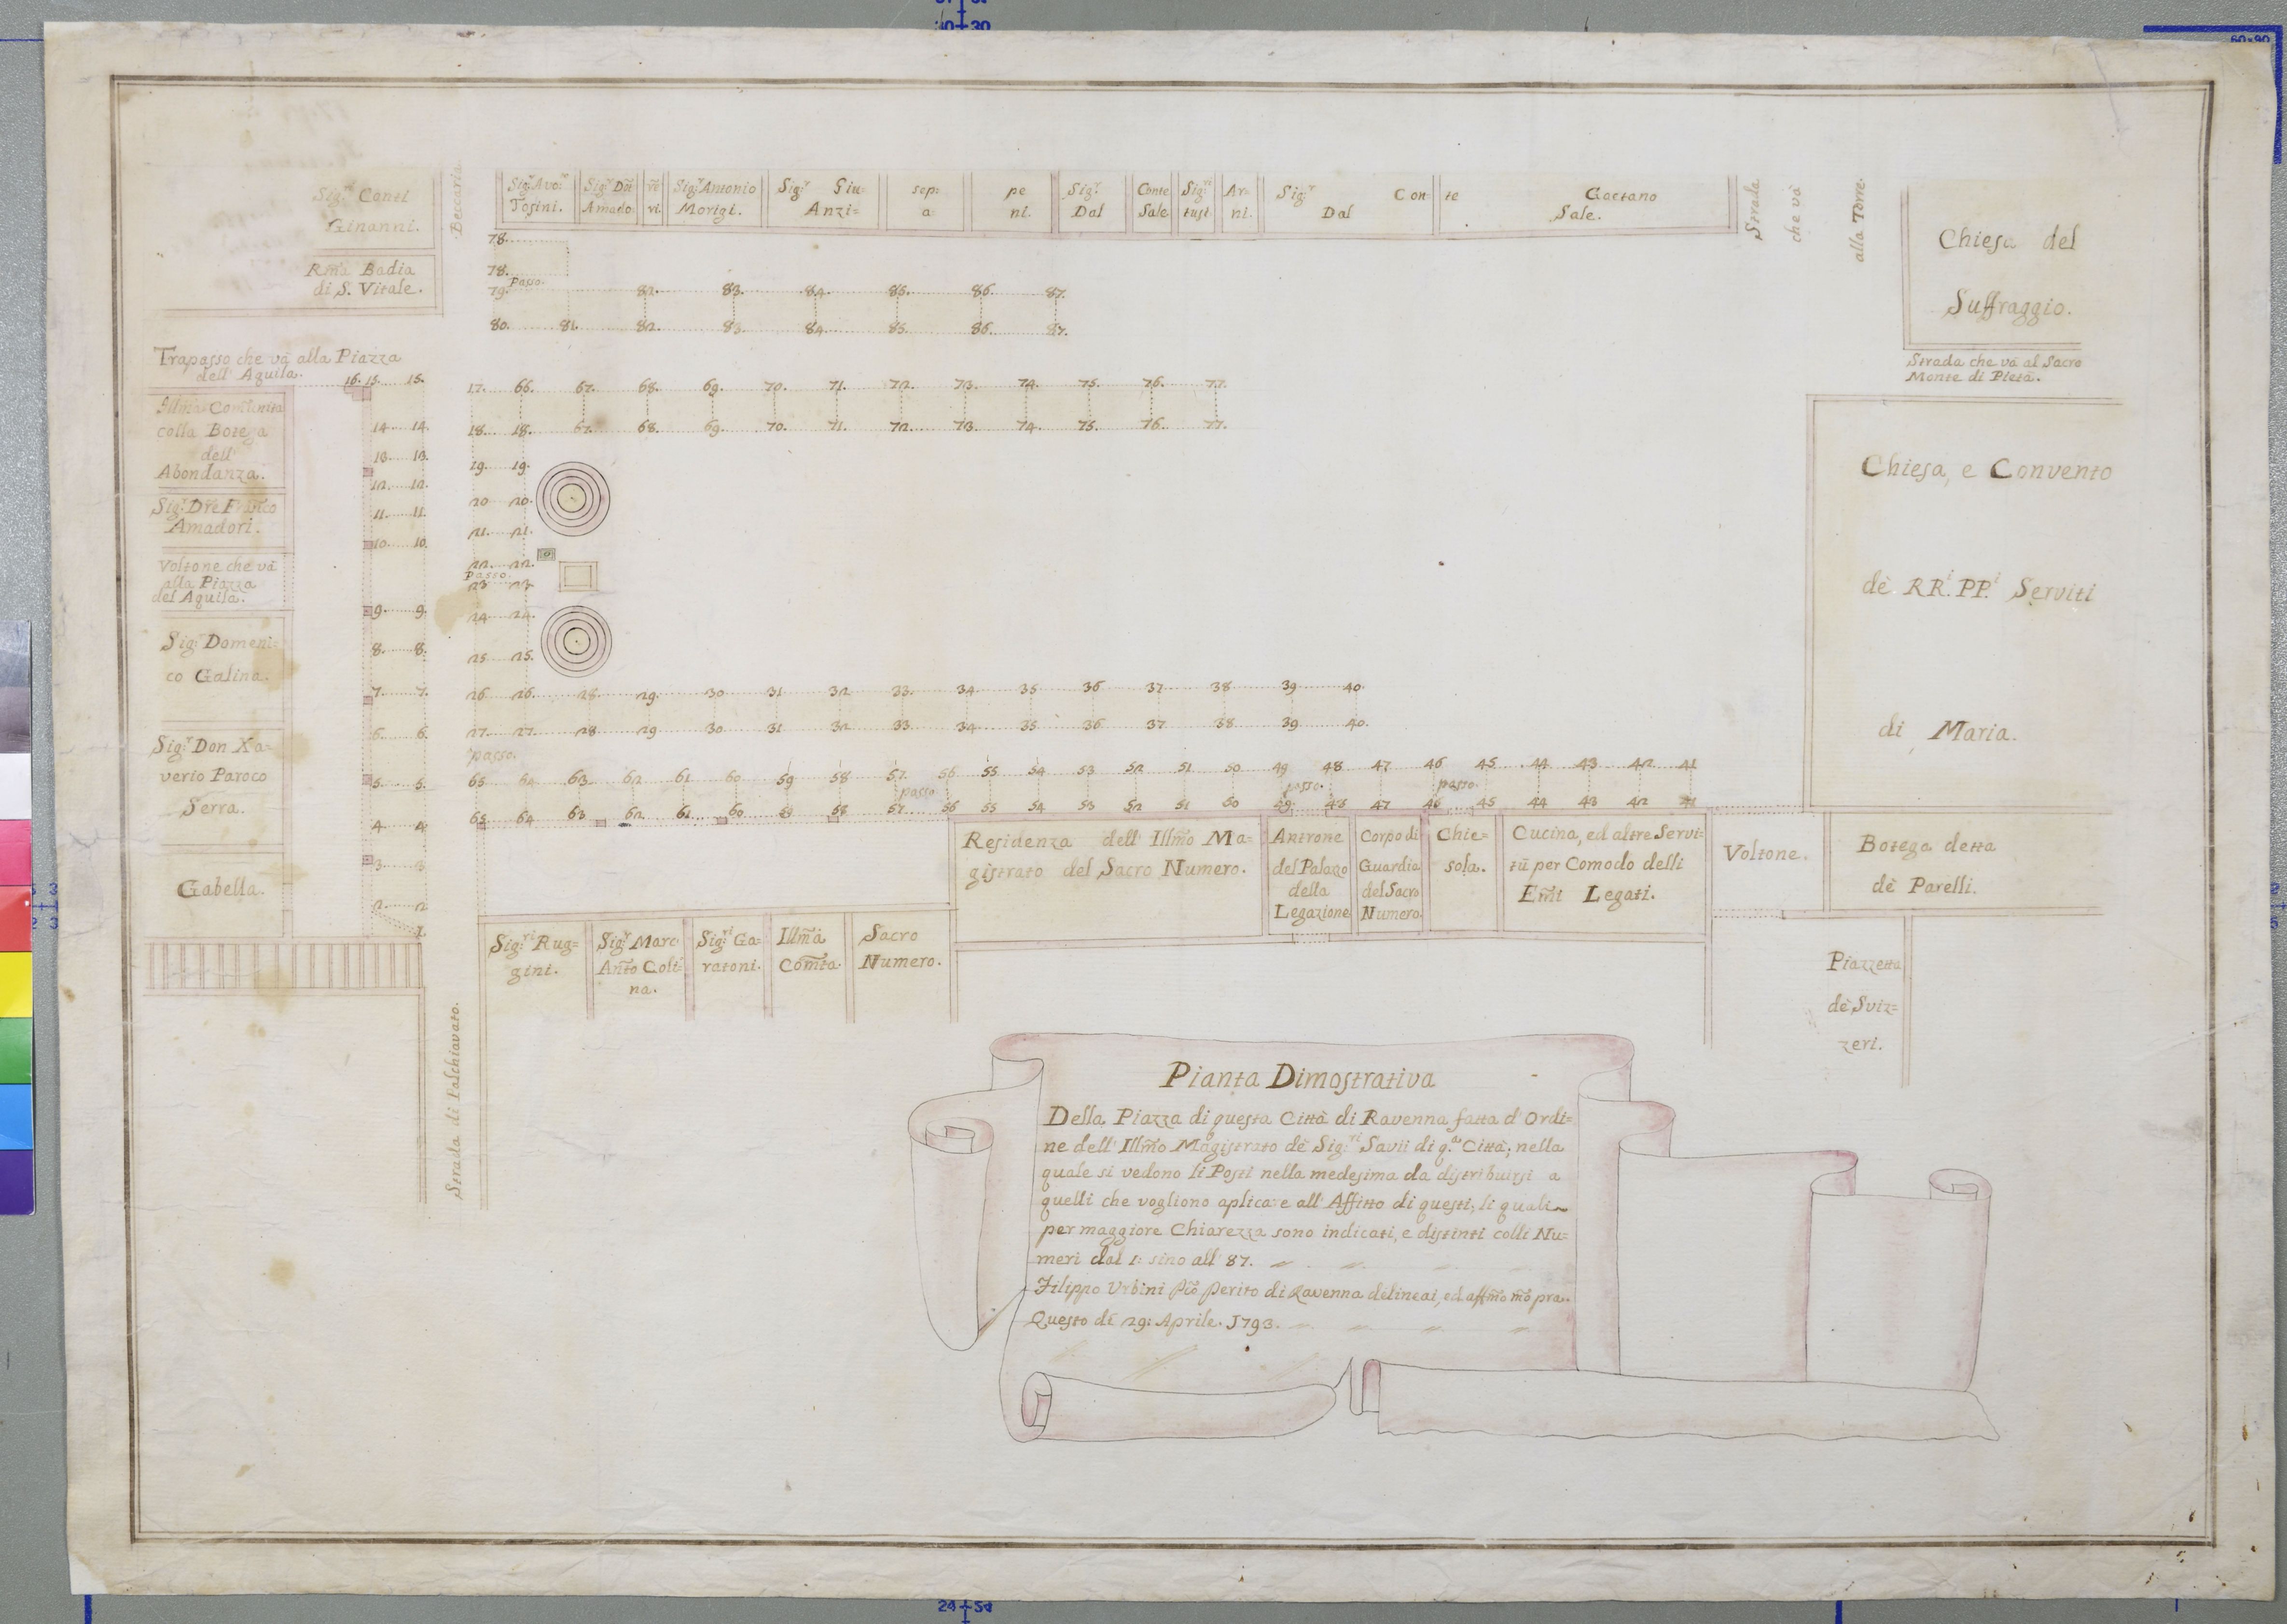 Sig.ri Conti
Ginanni.
Rm̃a Badia
di S. Vitale.
Beccaria.
Sig.r Avo.te
Tosini.
Sig.r Dõt
Amado:
vi.
Sig.r Antonio
Morigi.
Sig.r Giu=
Anzi=
sep:
a
pe
ni.
Sig.r
Dal
Conte
Sale
Sig.ri
tusi
Ar=
ni.
Sig.r Con te Gaetano
Dal Sale.
Strada
che và
alla Torre.
Chiesa del
Suffraggio.
Strada che và al Sacro
Monte di Pietà.
Chiesa, e Convento
dè RR.i PP.i Serviti
di Maria.
Trapasso che và alla Piazza
dell' Aquila.
Illm̃a Com̃unità
colla Botega
dell'
Abondanza.
Sig.r Dr̃e Franco
Amadori.
Voltone che và
alla Piazza
del Aquila.
Sig.r Domeni=
co Galina.
Sig.r Don Xa=
verio Paroco
Serra.
Gabella.
78.
78.
Passo.
79. 82. 83. 84. 85. 86. 87.
80. 81. 82. 83. 84. 85. 86. 87.
16. 15. 15.
17. 66. 67. 68. 69. 70. 71. 72. 73. 74. 75. 76. 77.
14. 14.
18. 18. 67. 68. 69. 70. 71. 72. 73. 74. 75. 76. 77.
13. 13.
19. 19.
12. 12.
20 20.
11. 11.
21. 21.
10. 10.
22. 22.
Passo.
23. 23.
9. 9.
24 24.
8. 8.
25 25.
7. 7.
26 26. 28. 29. 30 31 32 33. 34 35 36 37 38 39 40.
6. 6.
27. 27. 28 29 30 31 32 33 34 35 36 37 38 39 40.
passo.
5. 5.
65 64 63 62 61 60 59 58 57. 56 55 54 53 52 51 50 49 48 47 46 45 44 43 42 41
passo passo. passo.
65 64 63 62 61 60 59 58 57. 56 55 54 53 52 51 50 49. 48 47 46 45 44 43 42 41
4. 4.
3. 3
2 2
1.
Residenza dell' Illm̃o Ma=
gistrato del Sacro Numero.
Antrone
del Palazo
della
Legazione
Corpo di
Guardia
del Sacro
Numero
Chie=
sola.
Cucina, ed altre Servi=
tù per Comodo delli
Em̃i Legati.
Voltone.
Botega detta
dè Parelli.
Sig.ri Rug=
gini.
Sig.r Marc
Anto Coli=
na.
Sig.ri Ga=
ratoni.
Illm̃a
Com̃tà
Sacro
Numero.
Piazzetta
dè Sviz=
zeri.
Strada di Paschiavato.
Pianta Dimostrativa
Della Piazza di questa Città di Ravenna fatta d'Ordi=
ne dell' Illm̃o Magistrato dè Sig.ri Savii di q.a Città; nella
quale si vedono li Posti nella medesima da distribuirsi a
quelli che vogliono aplicare all' Affitto di questi; li quali
per maggiore Chiarezza sono indicati, e distinti colli Nu=
meri dal 1: sino all' 87.
Filippo Urbini Pco Perito di Ravenna delineai, ed affm̃o mõ pra.
Questo dì 29: Aprile. 1793.
30 30
60x90
24 54